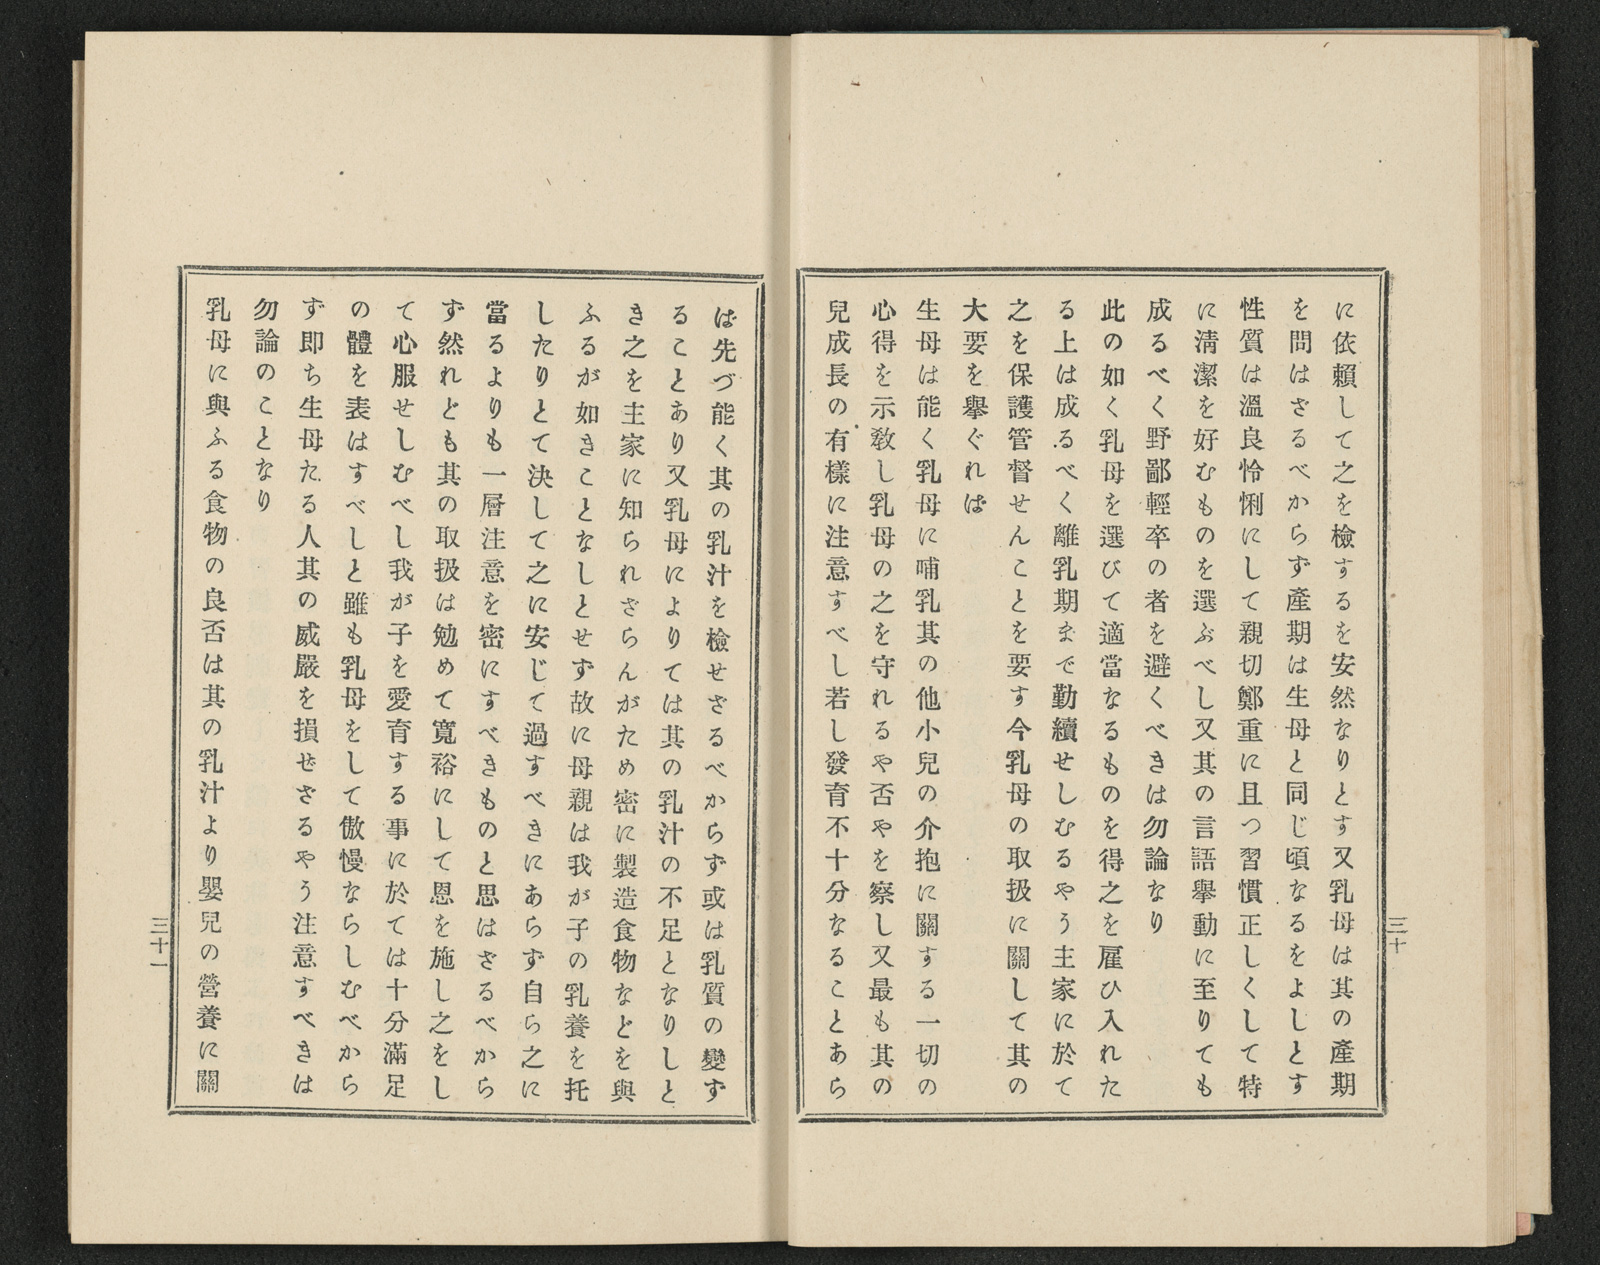 に依賴して之を檢するを安然なりとす又乳母は其の產期
を問はざるべからず產期は生母と同じ頃なるをよしとす
性質は溫良怜悧にして親切鄭重に且つ習慣正しくして特
に淸潔を好むものを選ぶべし又其の言語擧動に至りても
成るべく野鄙輕卒の者を避くべきは勿論なり
此の如く乳母を選びて適當なるものを得之を雇ひ入れた
る上は成るべく離乳期まで勤續せしむるやう主家に於て
之を保護管督せんことを要す今乳母の取扱に關して其の
大要を擧ぐれば
生母は能く乳母に哺乳其の他小兒の介抱に關する一切の
心得を示敎し乳母の之を守れるや否やを察し又最も其の
兒成長の有樣に注意すべし若し發育不十分なることあら
三十
は先づ能く其の乳汁を檢せざるべからず或は乳質の變ず
ることあり又乳母によりては其の乳汁の不足となりしと
き之を主家に知られざらんがため密に製造食物などを與
ふるが如きことなしとせず故に母親は我が子の乳養を托
したりとて決して之に安じて過すべきにあらず自ら之に
當るよりも一層注意を密にすべきものと思はざるべから
ず然れとも其の取扱は勉めて寬裕にして恩を施し之をし
て心服せしむべし我が子を愛育する事に於ては十分滿足
の體を表はすべしと雖も乳母をして傲慢ならしむべから
ず卽ち生母たる人其の威嚴を損せざるやう注意すべきは
勿論のことなり
乳母に與ふる食物の良否は其の乳汁より嬰兒の營養に關
三十一